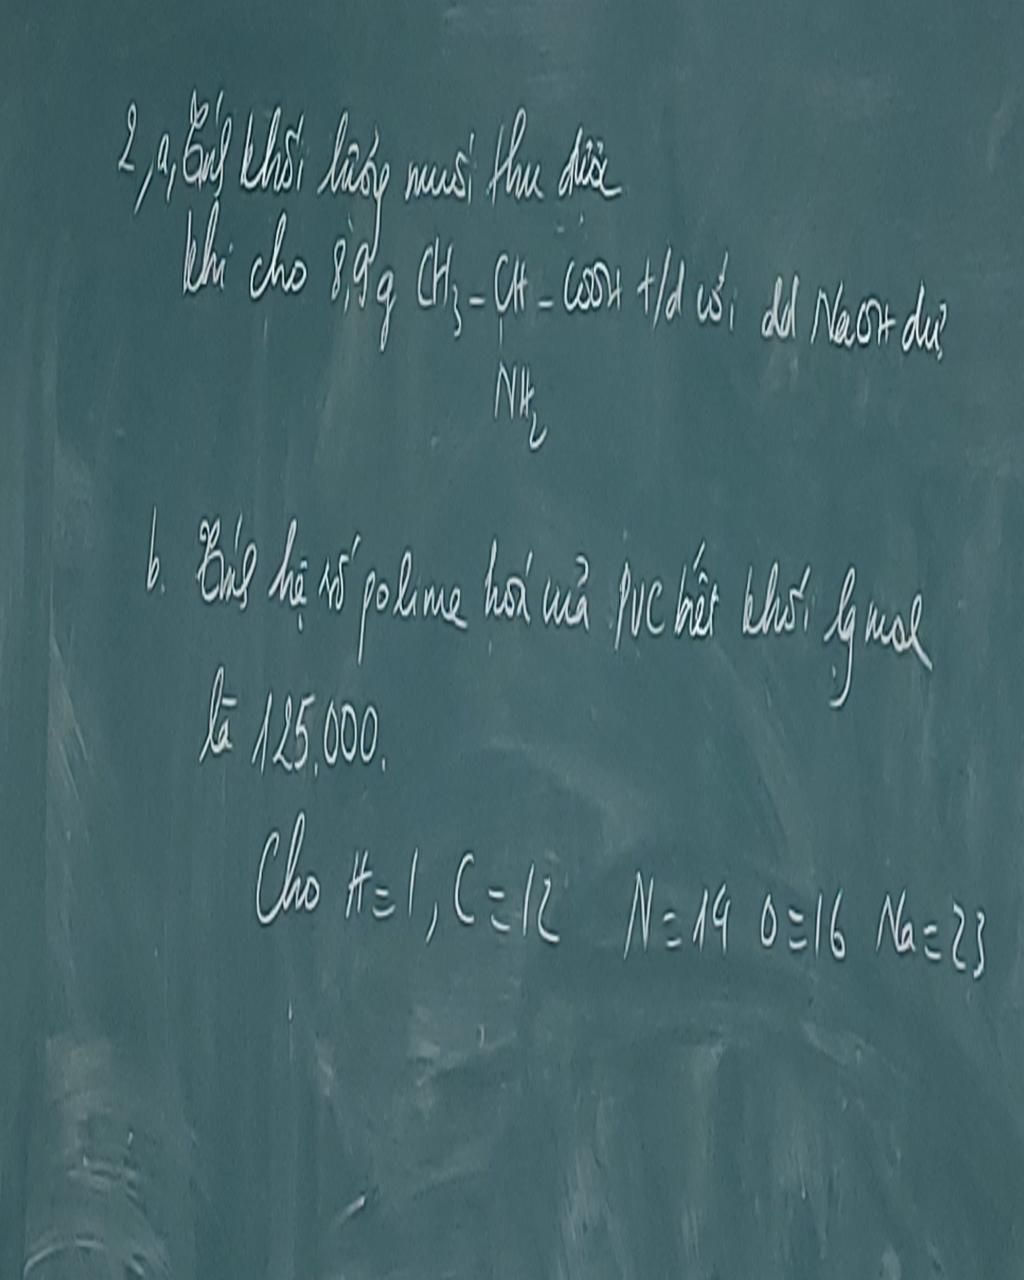 2, a, Tính khối lượng muối thu được
khi cho 8,9g CH3 - CH - COOH t/d với dd NaOH dư
NH2
b. Tính hệ số polime hoá của PVC biết khối lg mol
là 125.000.
Cho H = 1, C = 12 N = 14 O = 16 Na = 23